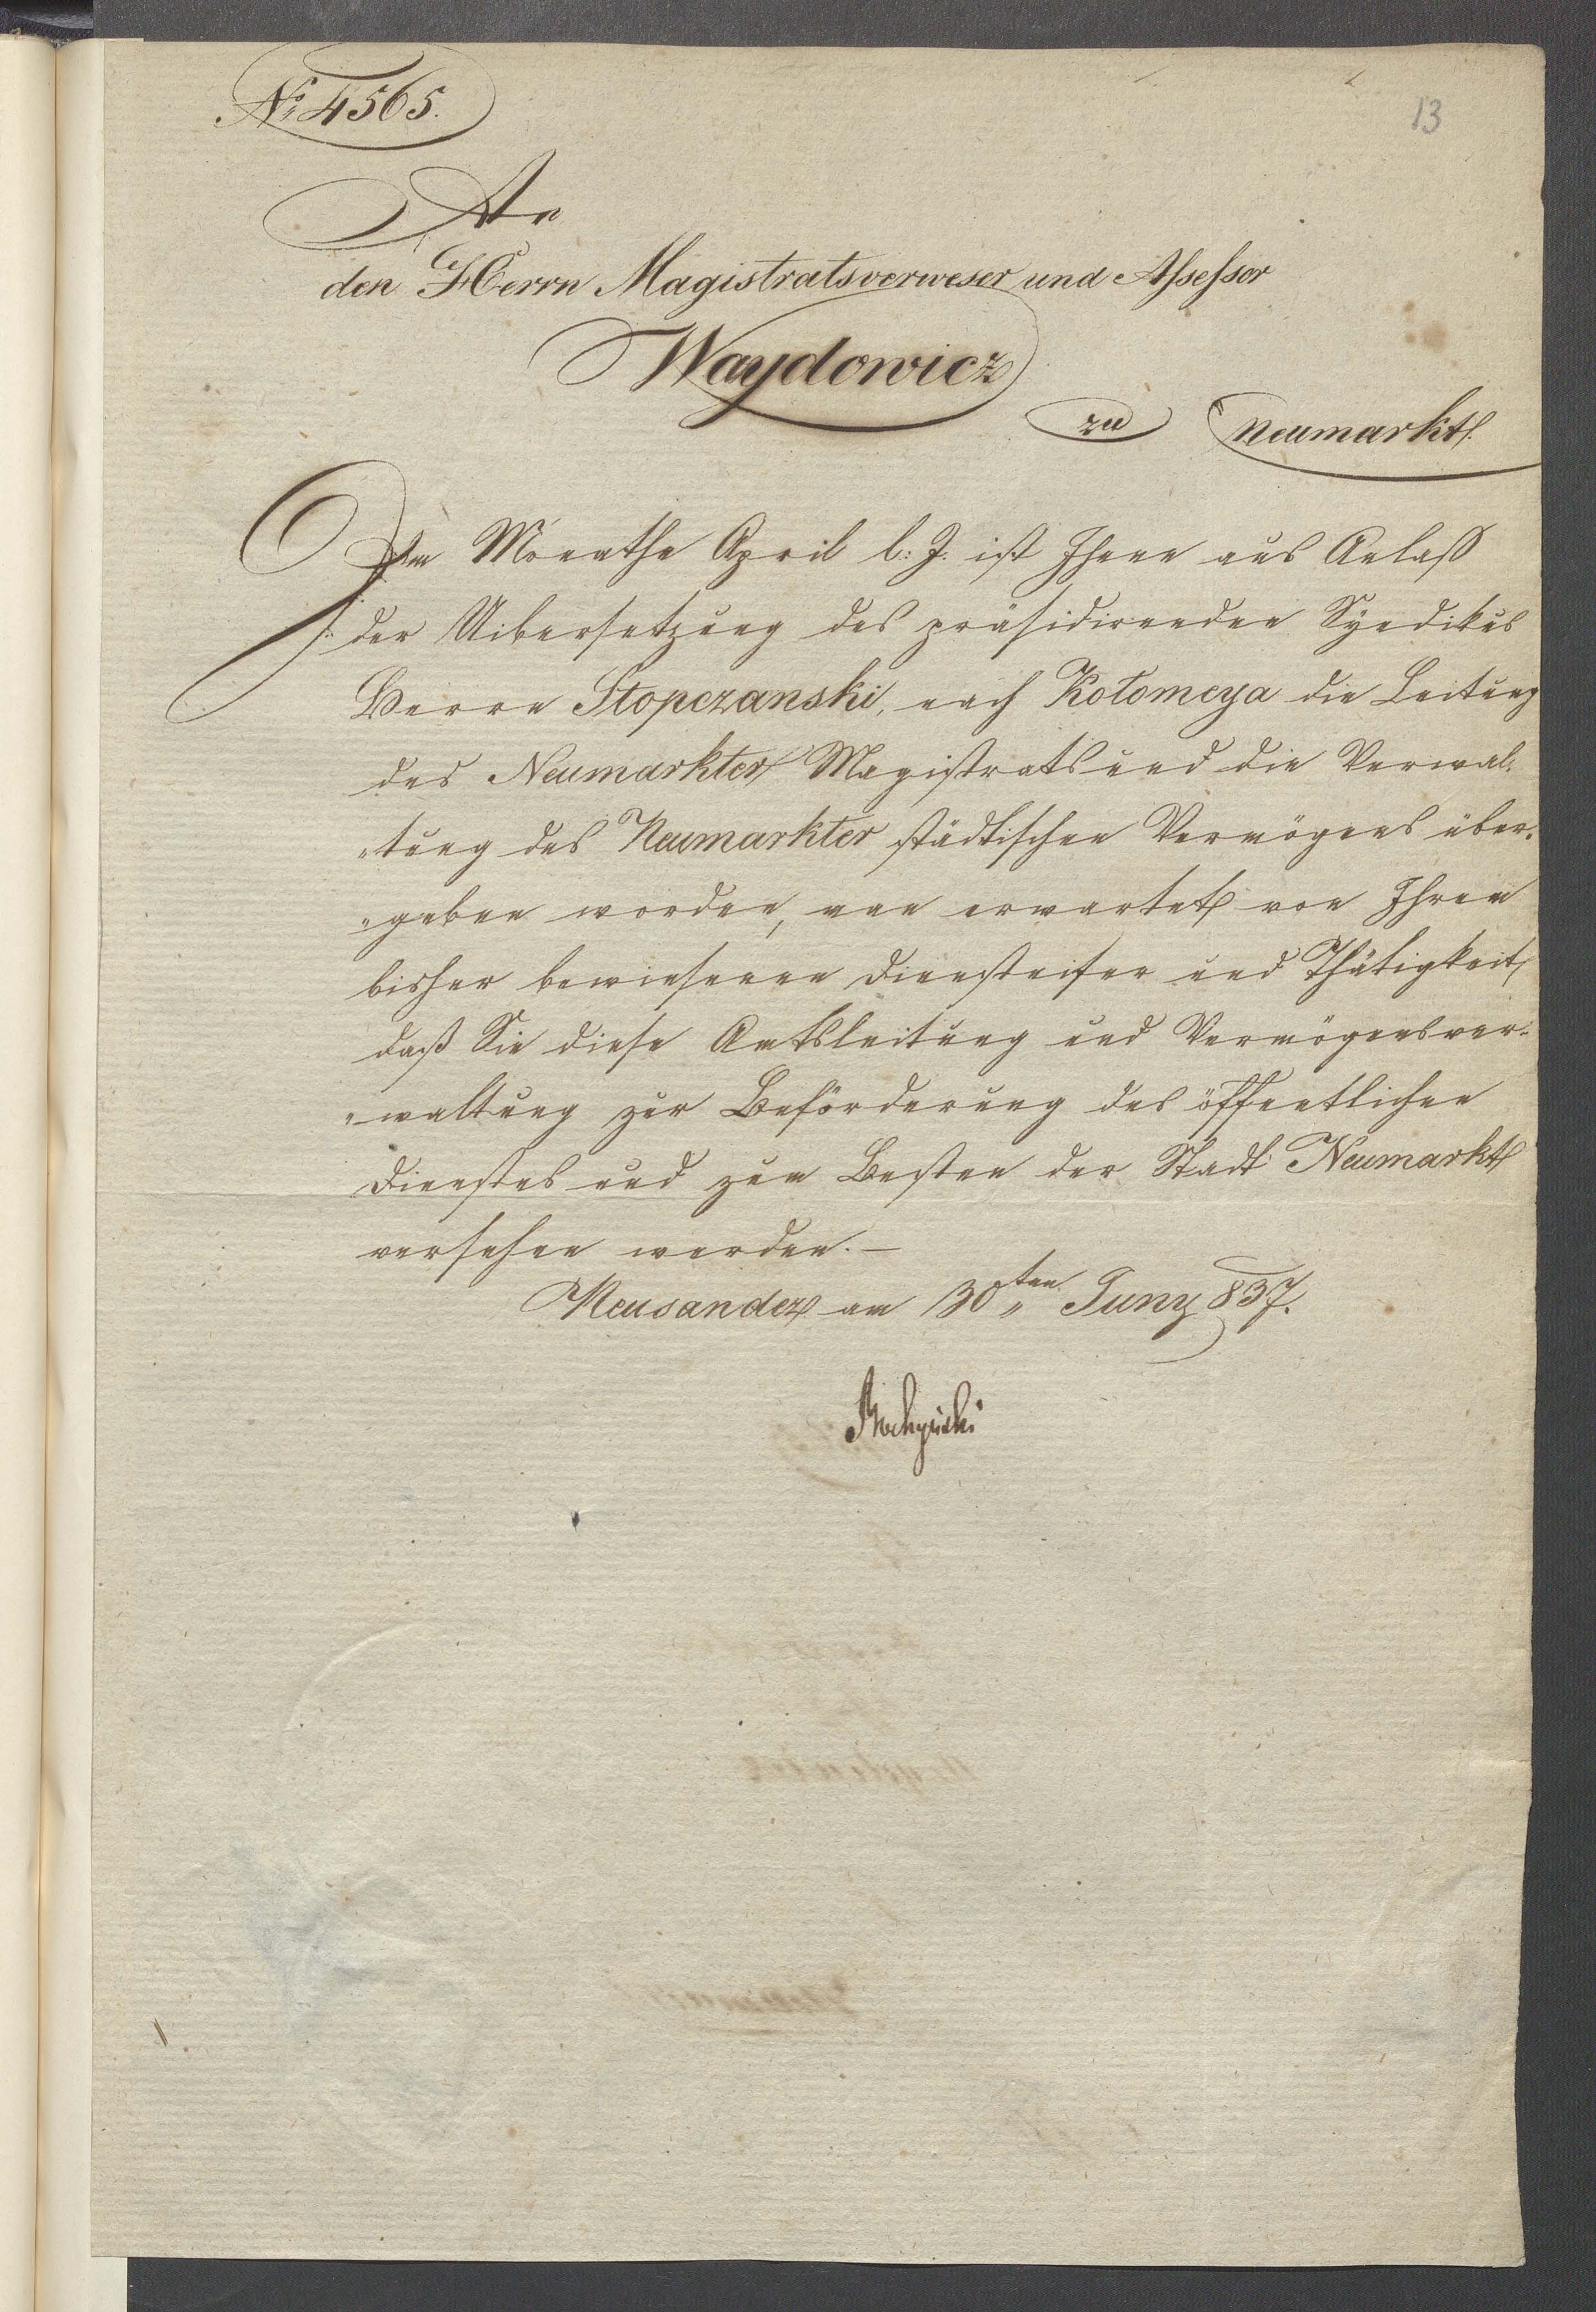 No 4565.
13
An
den Herrn Magistratsverweser und Assessor
Waydowicz
zu Neumarkt.
Im Monathe April l: J. ist Ihnen aus Anlaß
der Uibersetzung des präsidirenden Syndikus
Herrn Stopczanski, nach Kołomeya die Leitung
des Neumarkter Magistrats und die Verwal-
-tung des Neumarkter städtischen Vermögens über-
-geben worden, man erwartet von Ihrem
bisher bewiesenen Diensteifer und Thätigkeit,
daß Sie diese Amtsleitung und Vermögensver-
-waltung zur Beförderung des öffentlichen
Dienstes und zum Besten der Stadt Neumarkt
versehen werden.-
Neusandez am 30ten Juny 837.